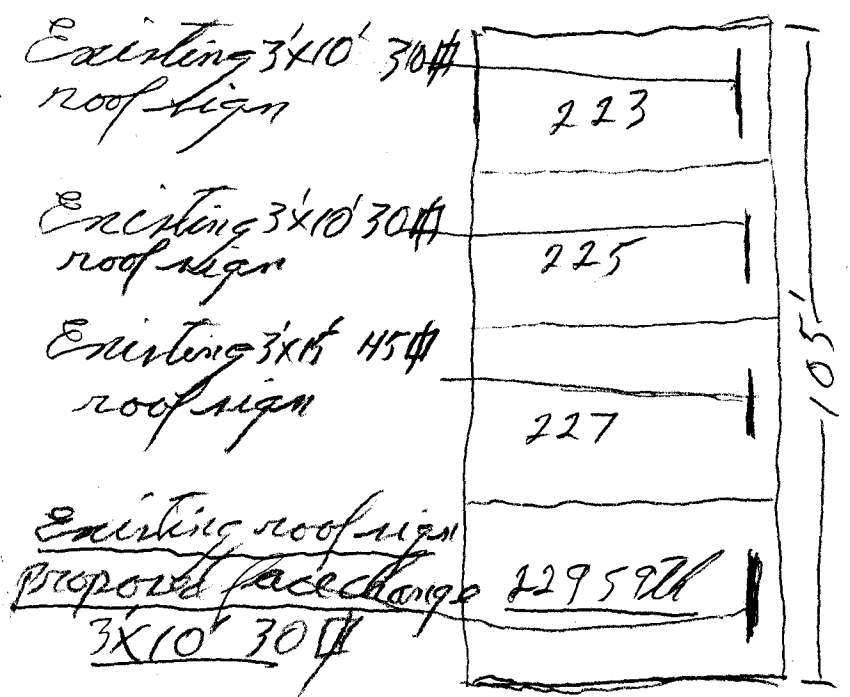 Existing 3'x10' 30⏍
roof sign
223
Existing 3'x10' 30⏍
roof sign
225
Existing 3'x15' 45⏍
roof sign
227
105'
Existing roof sign
proposed face change
229 59th
3'x10' 30⏍